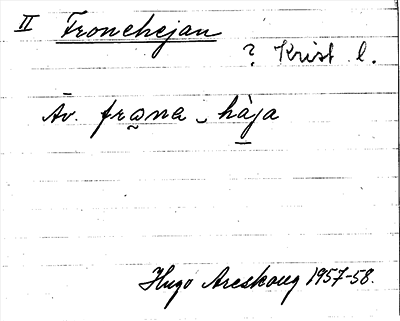 II Fronehejan
? Krist l.
Av. frω̰na ‿ hàja
Hugo Areskoug 1957-58.